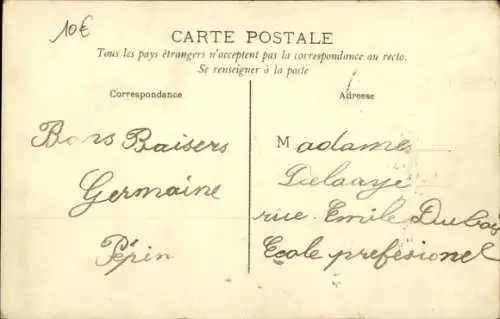 10€
CARTE POSTALE
Tous les pays étrangers n'acceptent pas la correspondance au recto.
Se renseigner à la poste
Correspondance
Bons Baisers
Germaine
Pépin
Adresse
Madame
Delaaye
rue Emile Dubois
Ecole prefesionel